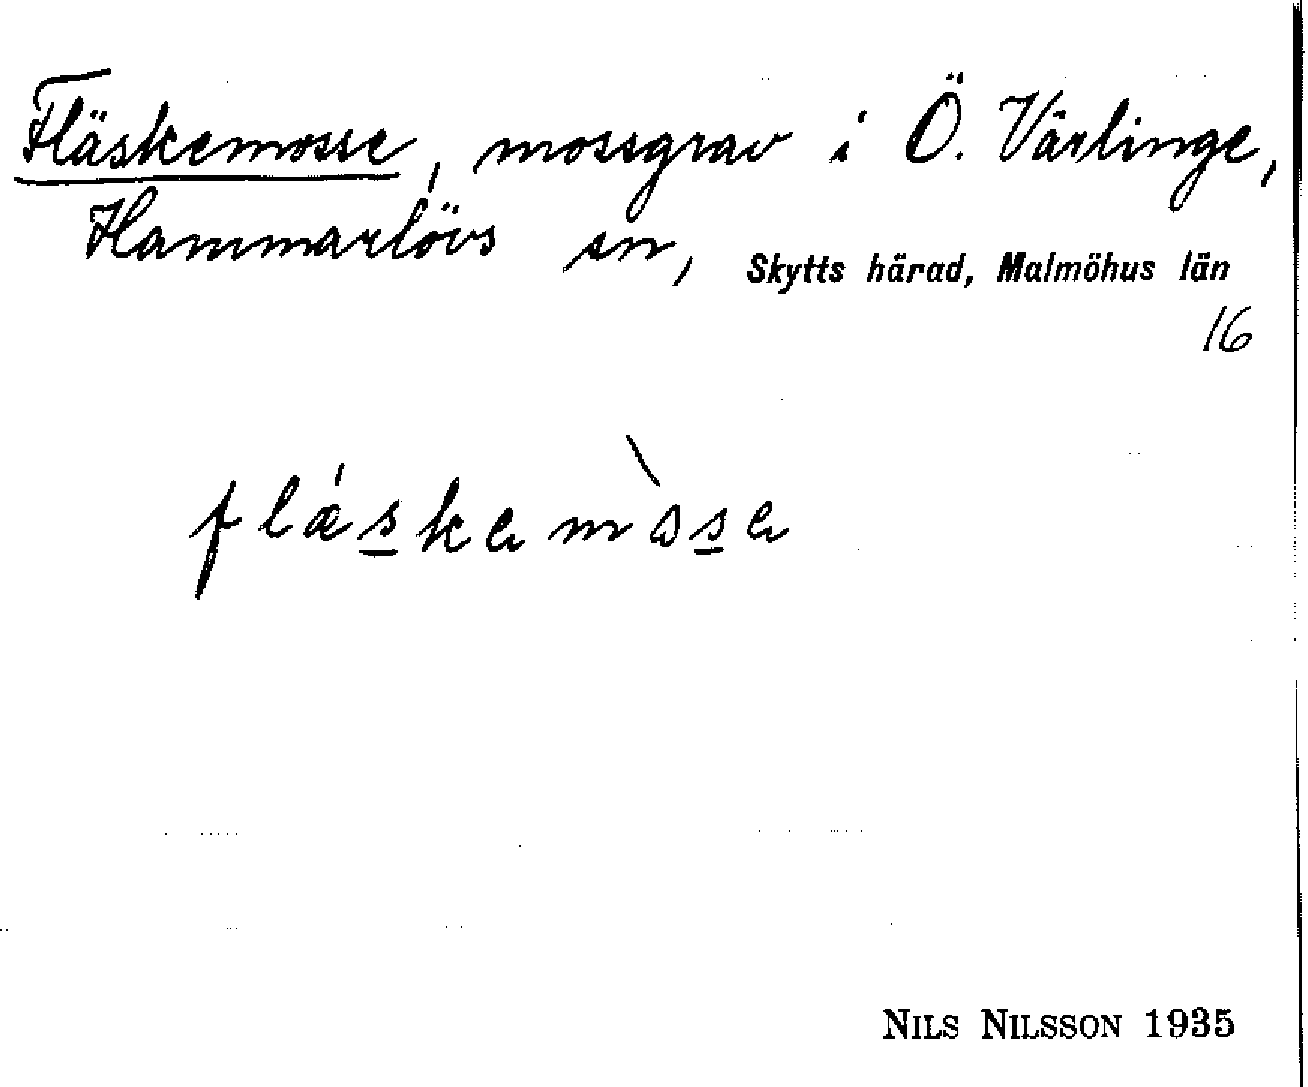 Fläskemosse, mossgrav i Ö. Värlinge,
Hammarlövs sn, Skytts härad, Malmöhus län
16
flǽskemòse
NILS NILSSON 1935